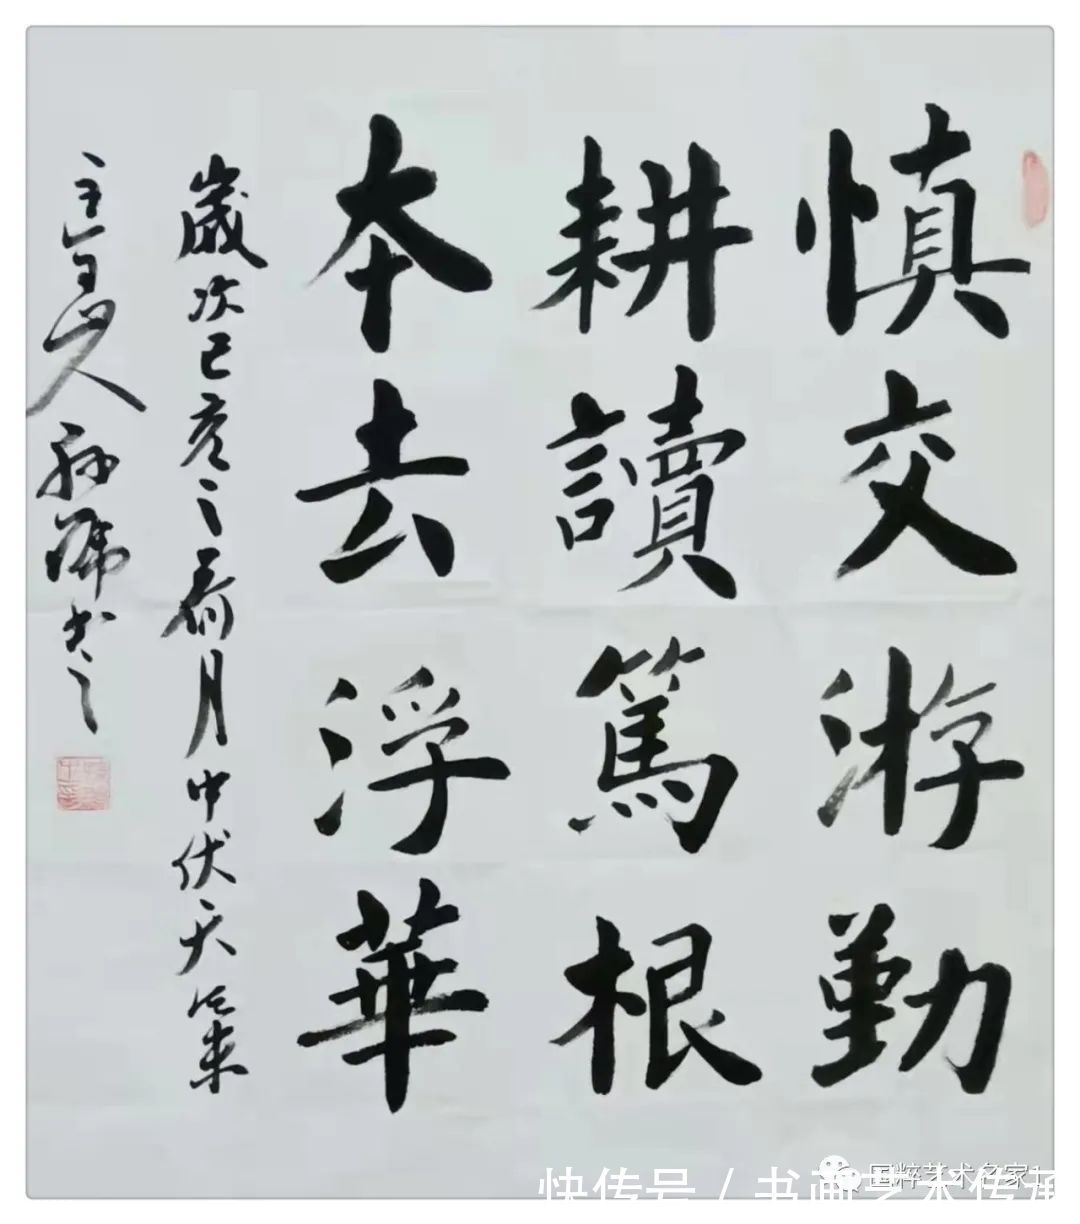 慎交游勤
耕讀篤根
本去浮華
歲次己亥之荷月中伏天
人 孫 書之
国粹艺术名家1
快传号 / 书画艺术传承